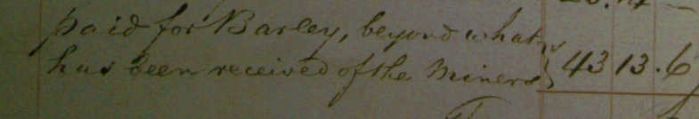 paid for Barley, beyond what
has been received of the Miners } 43 13.6